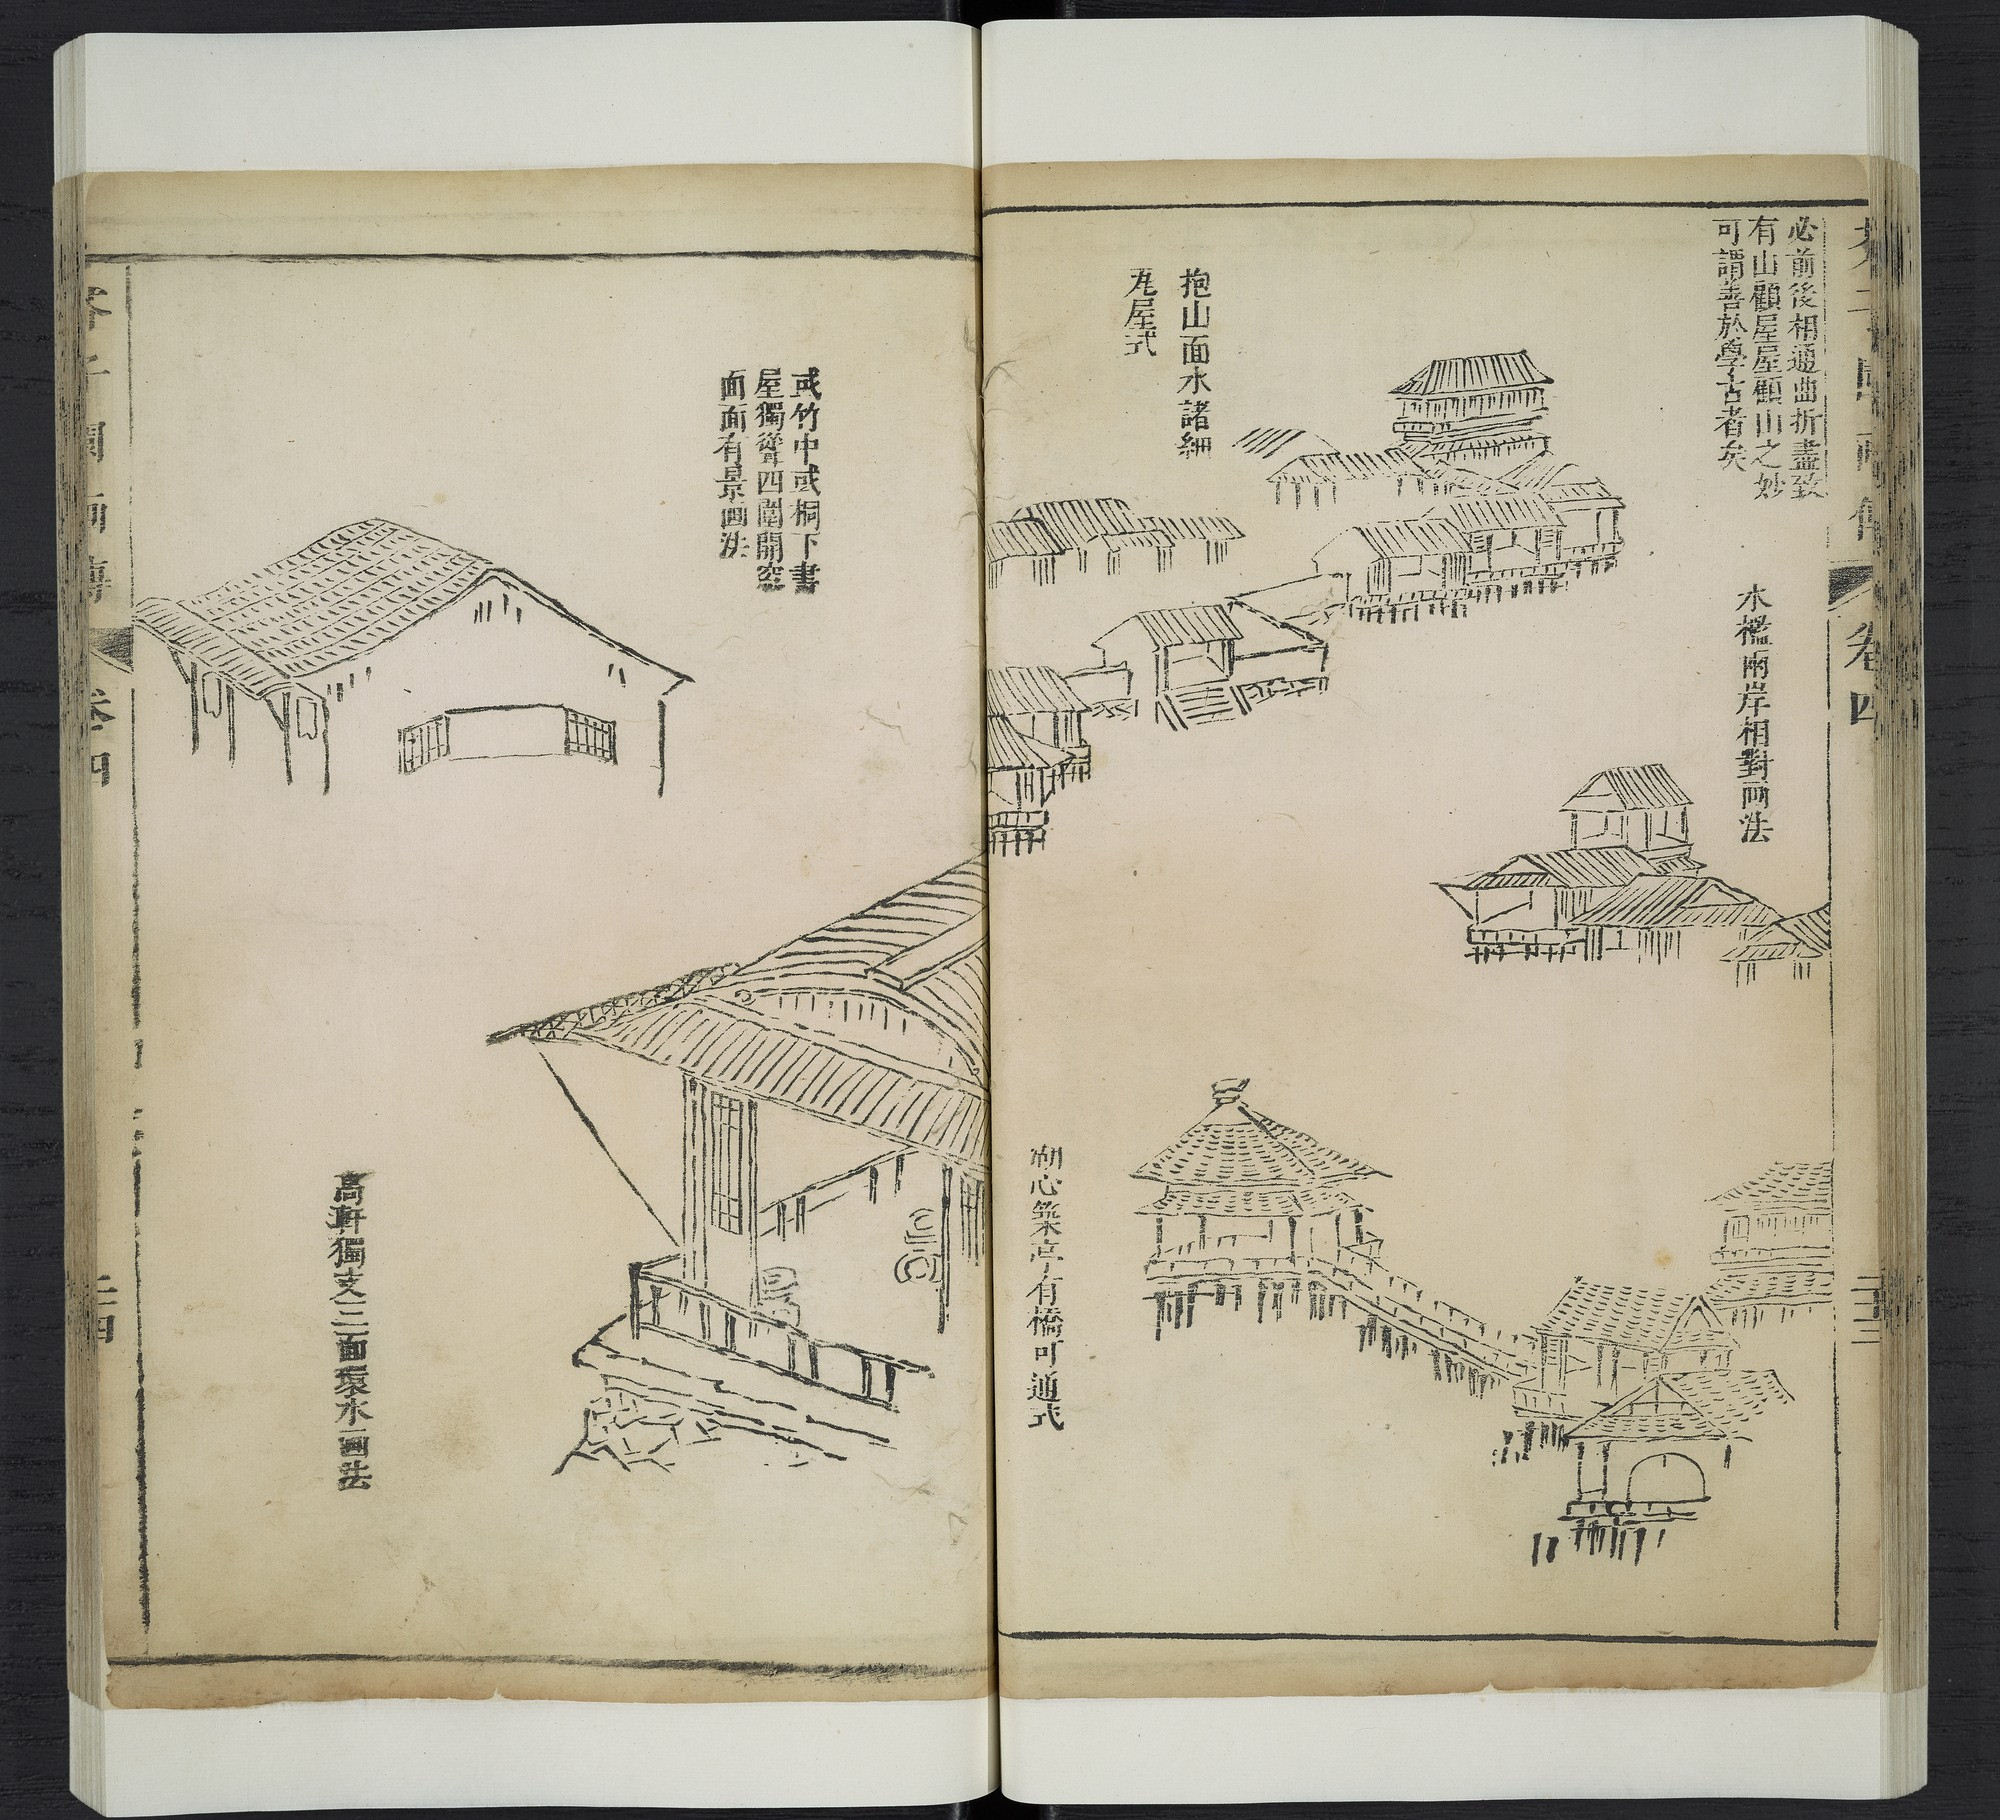 必前後相通曲折盡致
有山顧屋屋顧山之妙
可謂善於學古者矣
水檻兩岸相對画法
抱山面水諸細
瓦屋式
湖心築亭有橋可通式
卷四
二十三
或竹中或桐下書
屋獨聳四圍開窓
面面有景画法
高軒獨支三面環水画法
卷四
二十四